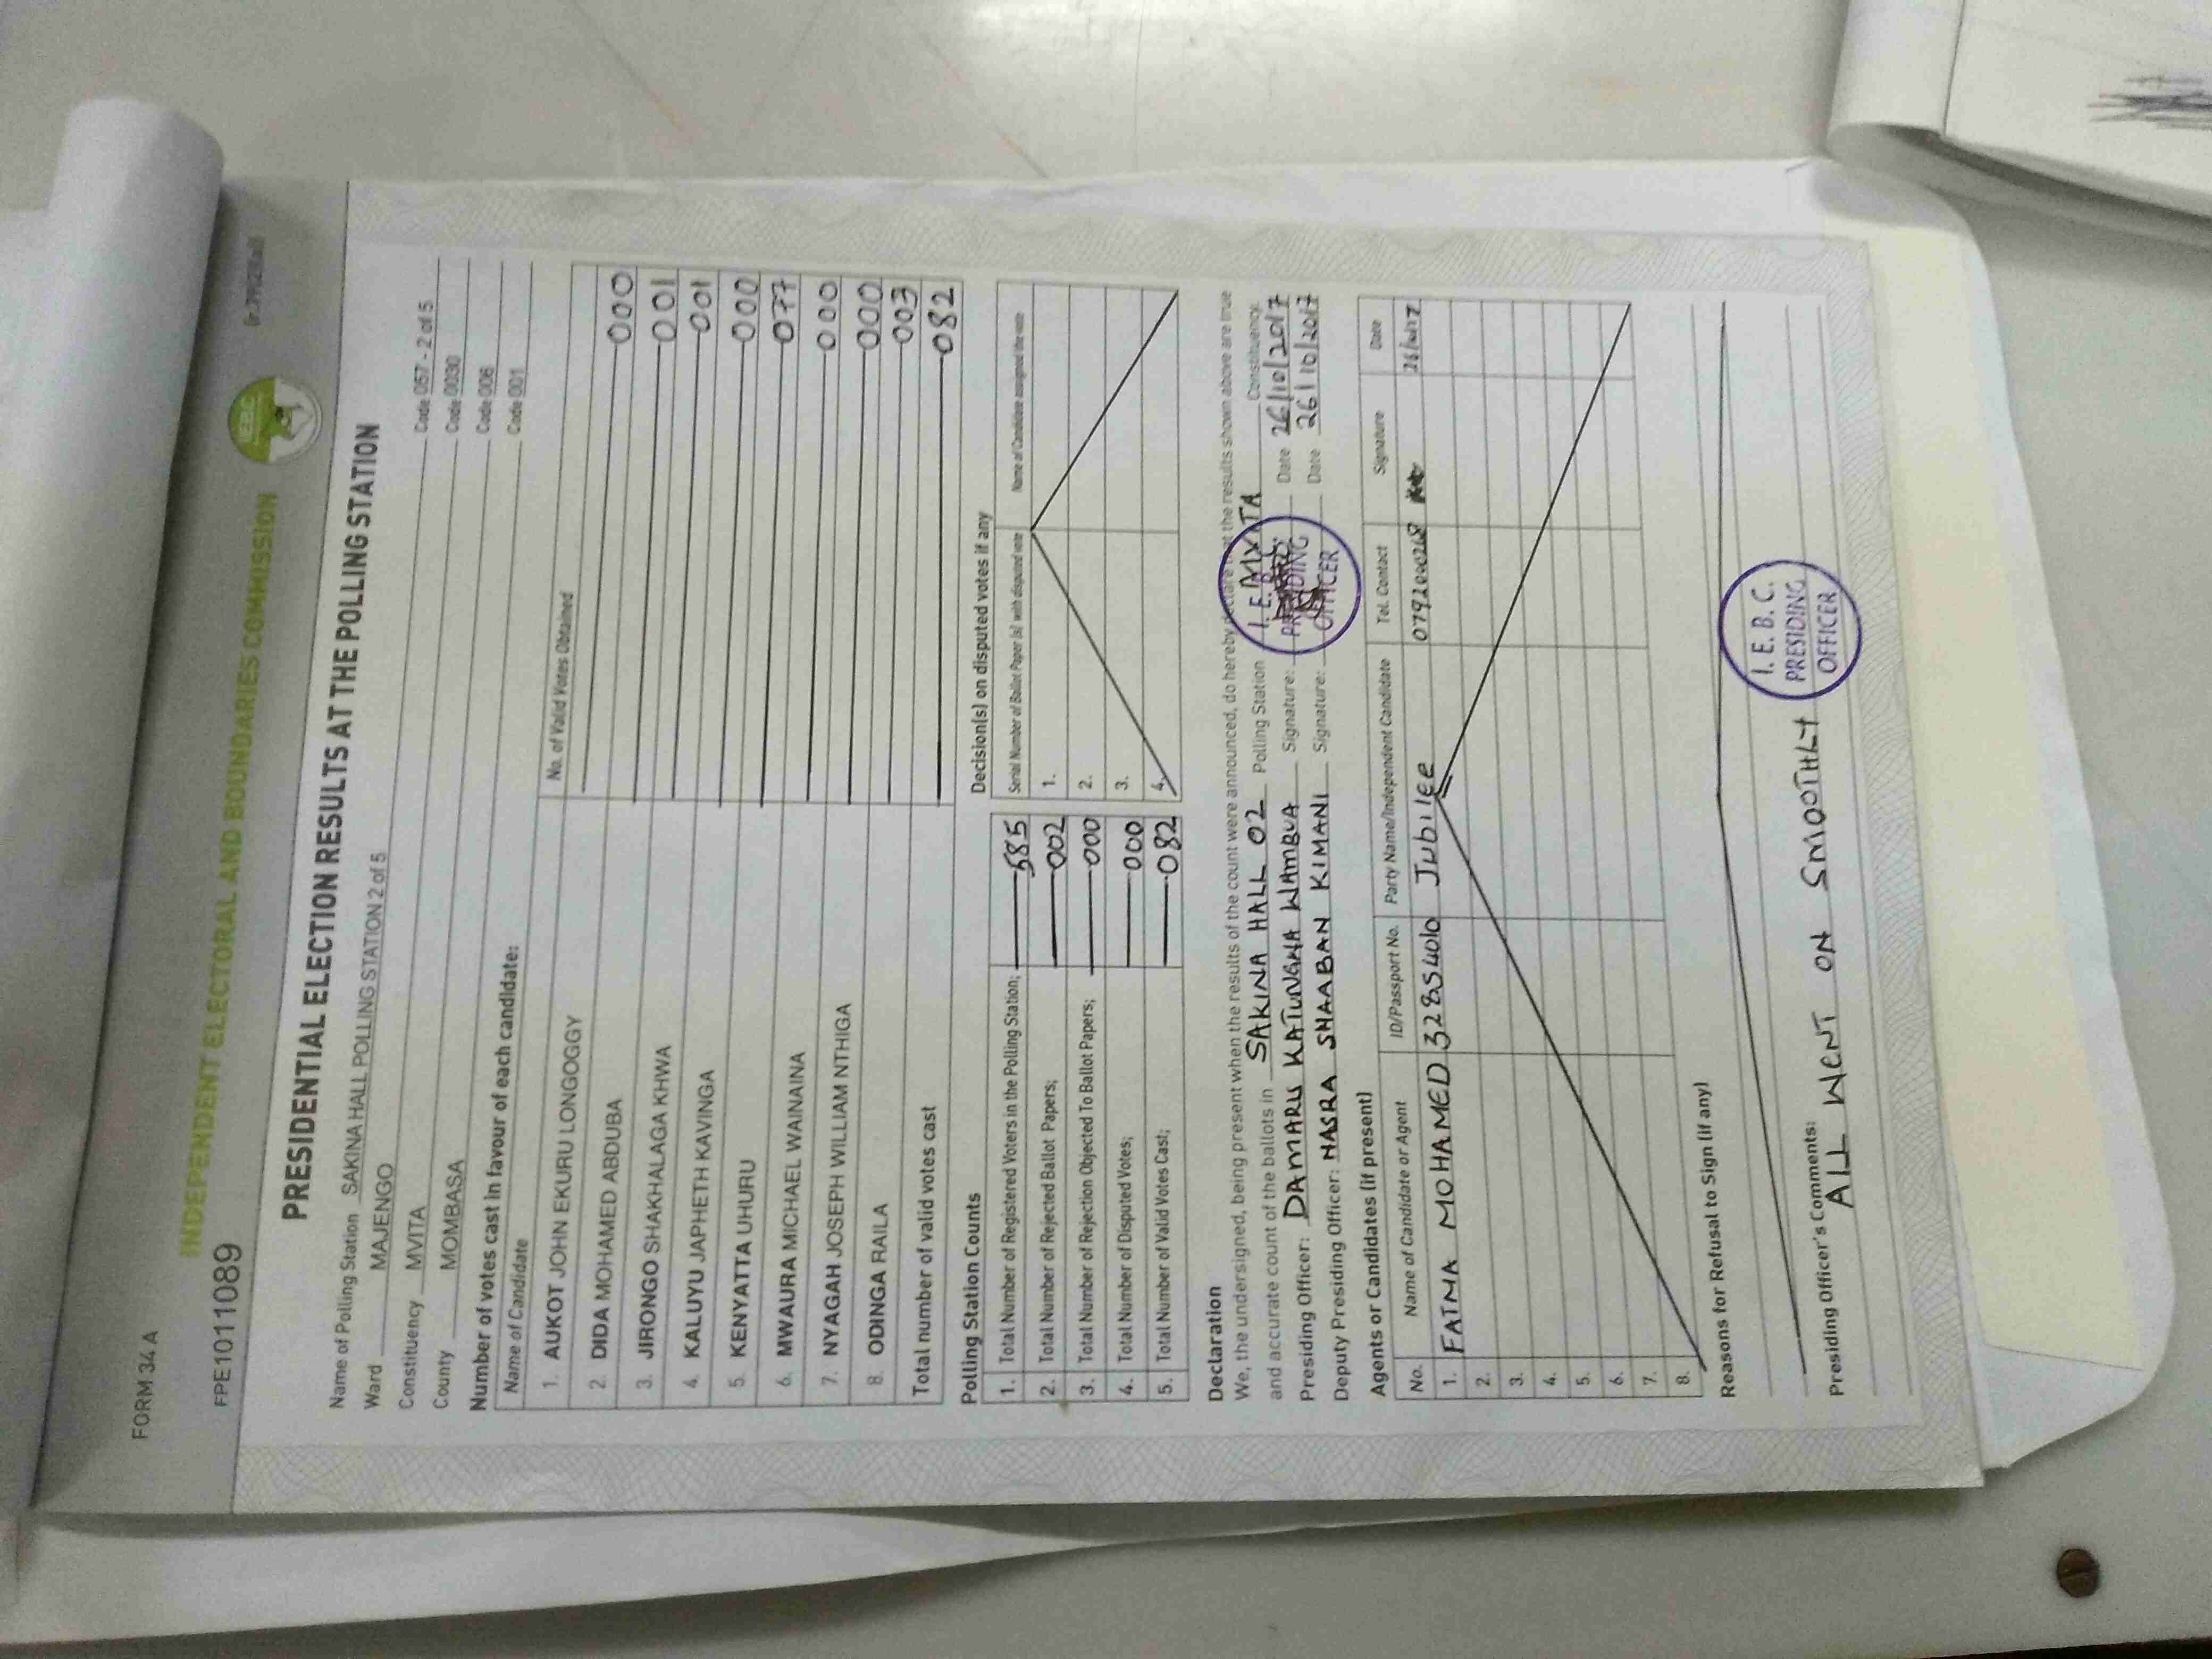 FORM 34 A
INDEPENDENT ELECTORAL AND BOUNDARIES COMMISSION
FPE1011089
IEBC
PRESIDENTIAL ELECTION RESULTS AT THE POLLING STATION
Name of Polling Station SAKINA HALL POLLING STATION 2 of 5 Code 057 - 2 of 5
Ward MAJENGO Code 0030
Constituency MVITA Code 006
County MOMBASA Code 001
Number of votes cast in favour of each candidate:
Name of Candidate No. of Valid Votes Obtained
1. AUKOT JOHN EKURU LONGOGGY 000
2. DIDA MOHAMED ABDUBA 001
3. JIRONGO SHAKHALAGA KHWA 001
4. KALUYU JAPHETH KAVINGA 000
5. KENYATTA UHURU 077
6. MWAURA MICHAEL WAINAINA 000
7. NYAGAH JOSEPH WILLIAM NTHIGA 000
8. ODINGA RAILA 003
Total number of valid votes cast 082
Polling Station Counts
1. Total Number of Registered Voters in the Polling Station;
2. Total Number of Rejected Ballot Papers; 002
3. Total Number of Rejection Objected To Ballot Papers; 000
4. Total Number of Disputed Votes; 000
5. Total Number of Valid Votes Cast; 082
Decision(s) on disputed votes if any
Serial Number of Ballot Paper (s) with disputed vote Name of Candidate assigned the vote
1.
2.
3.
4.
Declaration
We, the undersigned, being present when the results of the count were announced, do hereby declare that the results shown above are true
and accurate count of the ballots in SAKINA HALL 02 Polling Station MVITA Constituency.
Presiding Officer: DAMARIS KATUNGWA WAMBUA Signature: Date 26/10/2017
Deputy Presiding Officer: NASRA SHAABAN KIMANI Signature: Date 26/10/2017
I. E. B. C.
PRESIDING
OFFICER
Agents or Candidates (if present)
No. Name of Candidate or Agent ID/Passport No. Party Name/Independent Candidate Tel. Contact Signature Date
1. FATMA MOHAMED 32854010 Jubilee 0792000268
2.
3.
4.
5.
6.
7.
8.
Reasons for Refusal to Sign (if any)
Presiding Officer's Comments:
ALL WENT ON SMOOTHLY
I. E. B. C.
PRESIDING
OFFICER